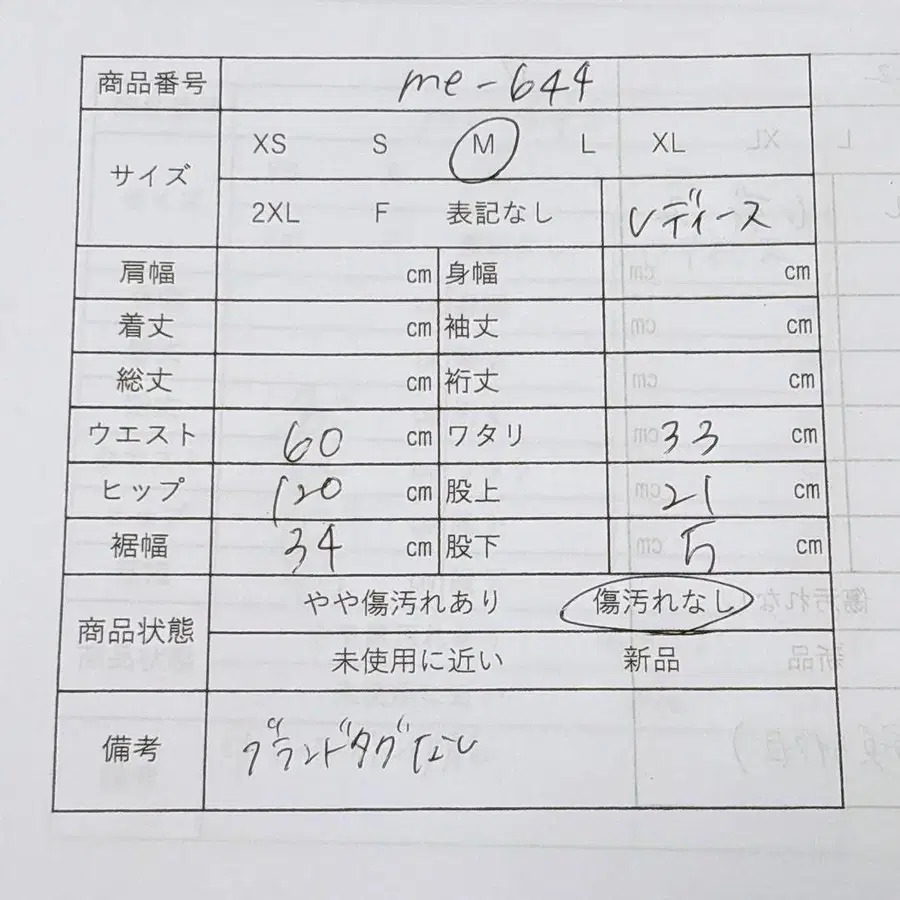 商品番号 me-644
サイズ XS S M L XL
2XL F 表記なし レディース
肩幅 cm 身幅 cm
着丈 cm 袖丈 cm
総丈 cm 裄丈 cm
ウエスト 60 cm ワタリ 33 cm
ヒップ 120 cm 股上 21 cm
裾幅 34 cm 股下 5 cm
商品状態 やや傷汚れあり 傷汚れなし
未使用に近い 新品
備考 ブランドタグなし